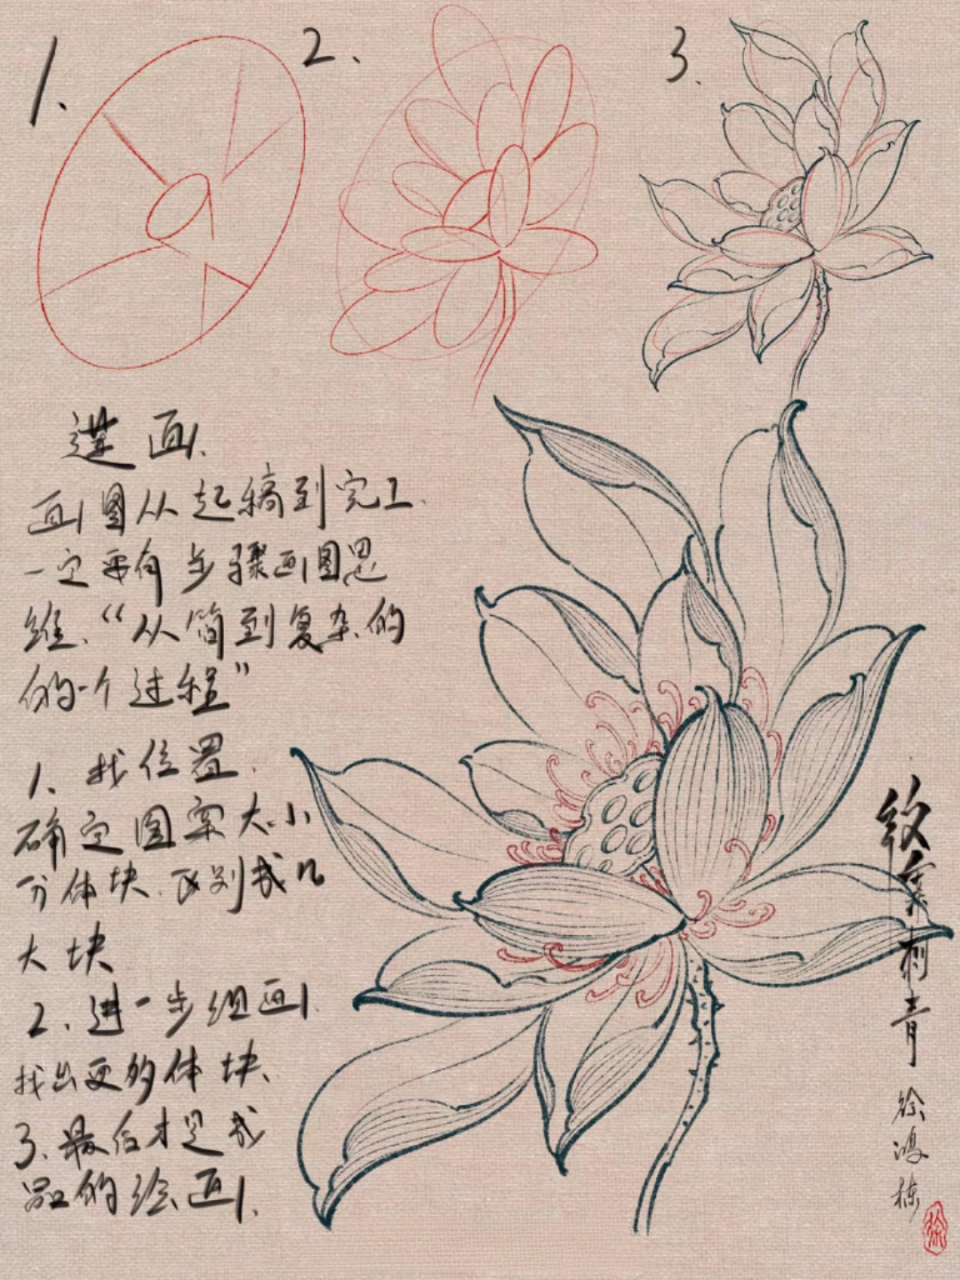 1.
2.
3.
莲画.
画图从起稿到完工.
一定要有步骤画图思
维.“从简到复杂的
的一个过程”
1. 找位置.
确定图案大小
分体块.区别成几
大块
2. 进一步细画.
找出更多体块.
3. 最后才是成
品的绘画.
刺青
徐鸿栋
徐